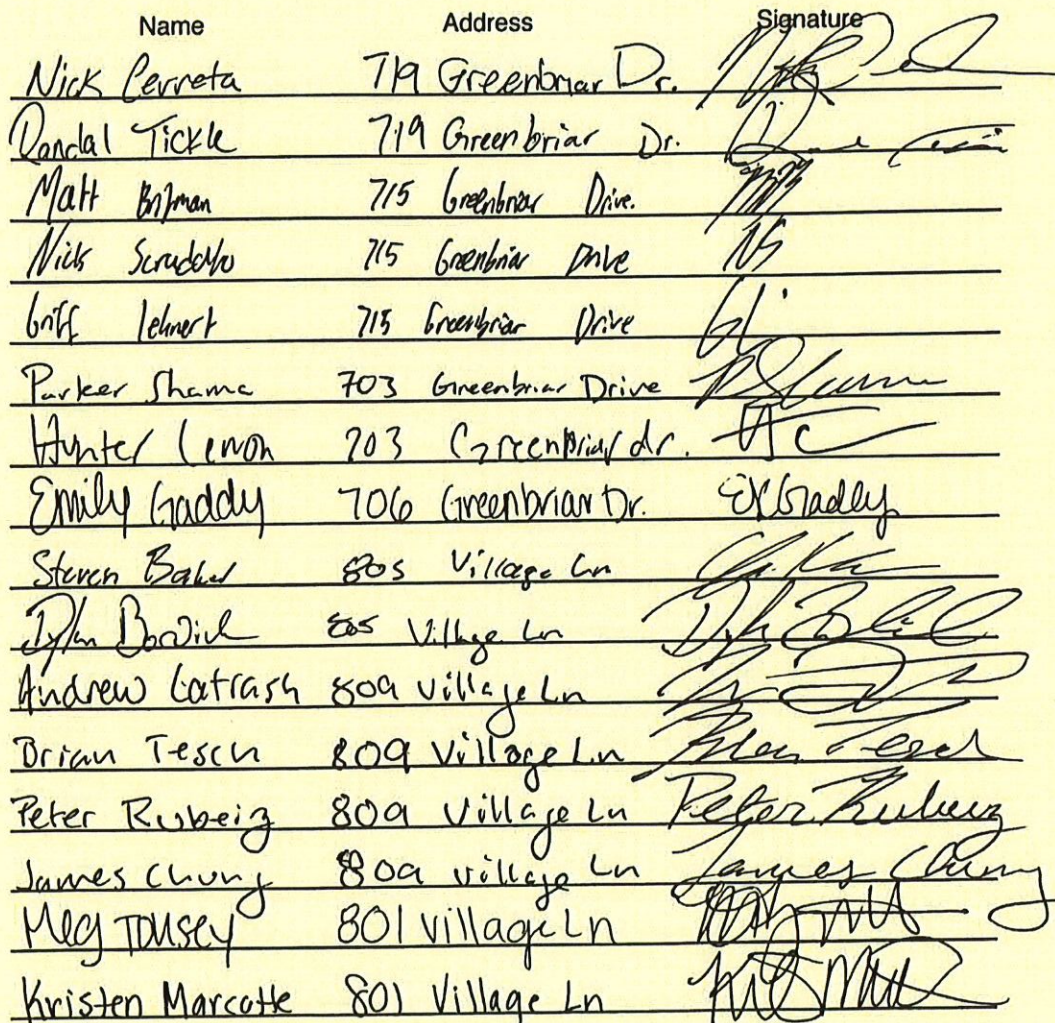 Name Address Signature
Nick Cerreta 719 Greenbriar Dr.
Randal Tickle 719 Greenbriar Dr.
Matt 715 Greenbriar Drive.
Nick 715 Greenbriar Drive NS
Griff Lehnert 715 Greenbriar Drive
Parker Shama 703 Greenbriar Drive
Hunter Lemon 703 Greenbriar dr.
Emily Gaddy 706 Greenbriar Dr. EKGaddy
Steven Baker 805 Village Ln
Dylan Borwick 805 Village Ln
Andrew Latrash 809 Village Ln
Brian Tesch 809 Village Ln Brian Tesch
Peter Rubeiz 809 Village Ln Peter Rubeiz
James Chung 809 Village Ln James Chung
Meg Tousey 801 Village Ln
Kristen Marcotte 801 Village Ln